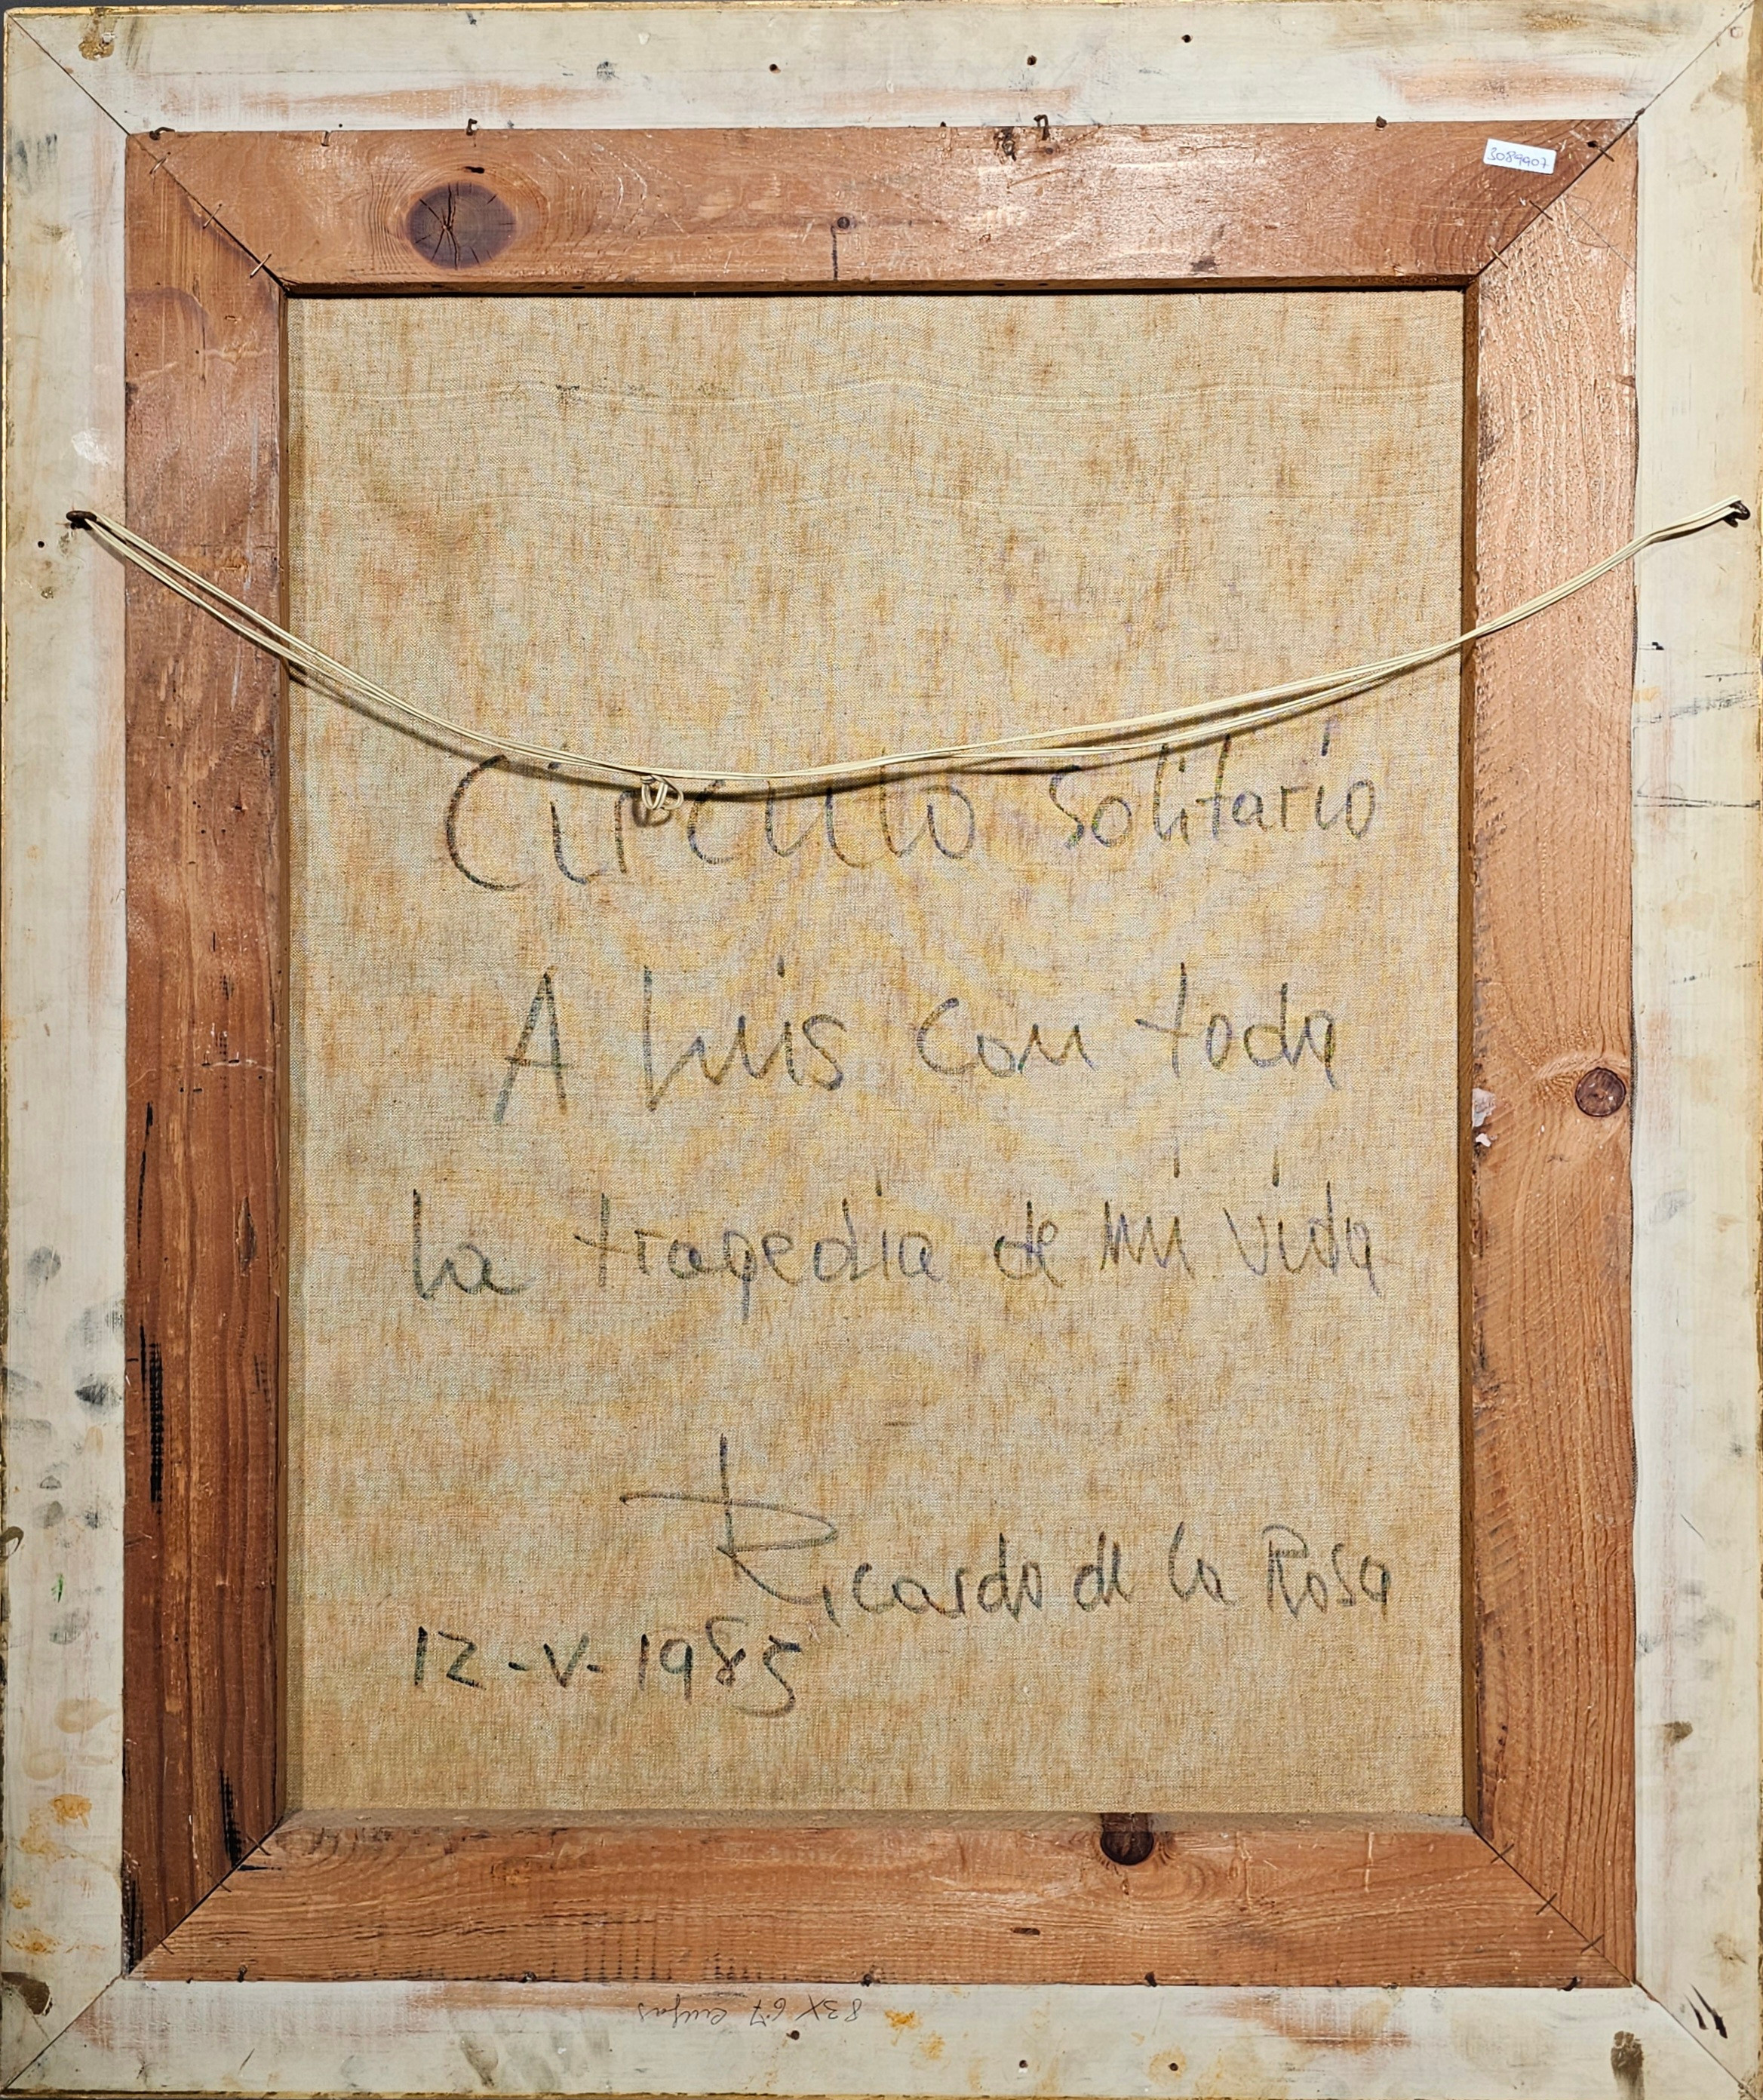 3089907
Circulo Solitario
A Luis con toda
la tragedia de mi vida
Ricardo de la Rosa
12-V-1985
83X67